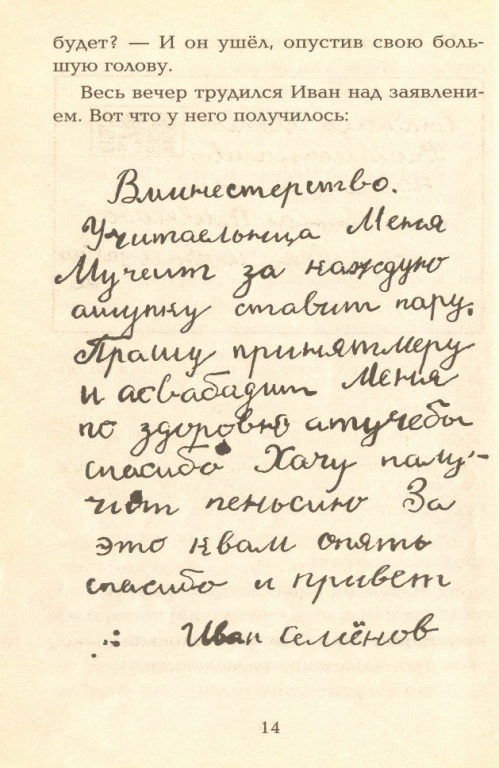 будет? — И он ушёл, опустив свою боль-
шую голову.
Весь вечер трудился Иван над заявлени-
ем. Вот что у него получилось:
Вминестерство.
Учитаельница Меня
Мучеит за каждую
ашупку ставит пару.
Прашу принятмеру
и асвабадит Меня
по здоровю атучебы
спасибо Хачу палу-
чит пеньсию За
это квам опять
спасибо и привет
Иван Семёнов
14